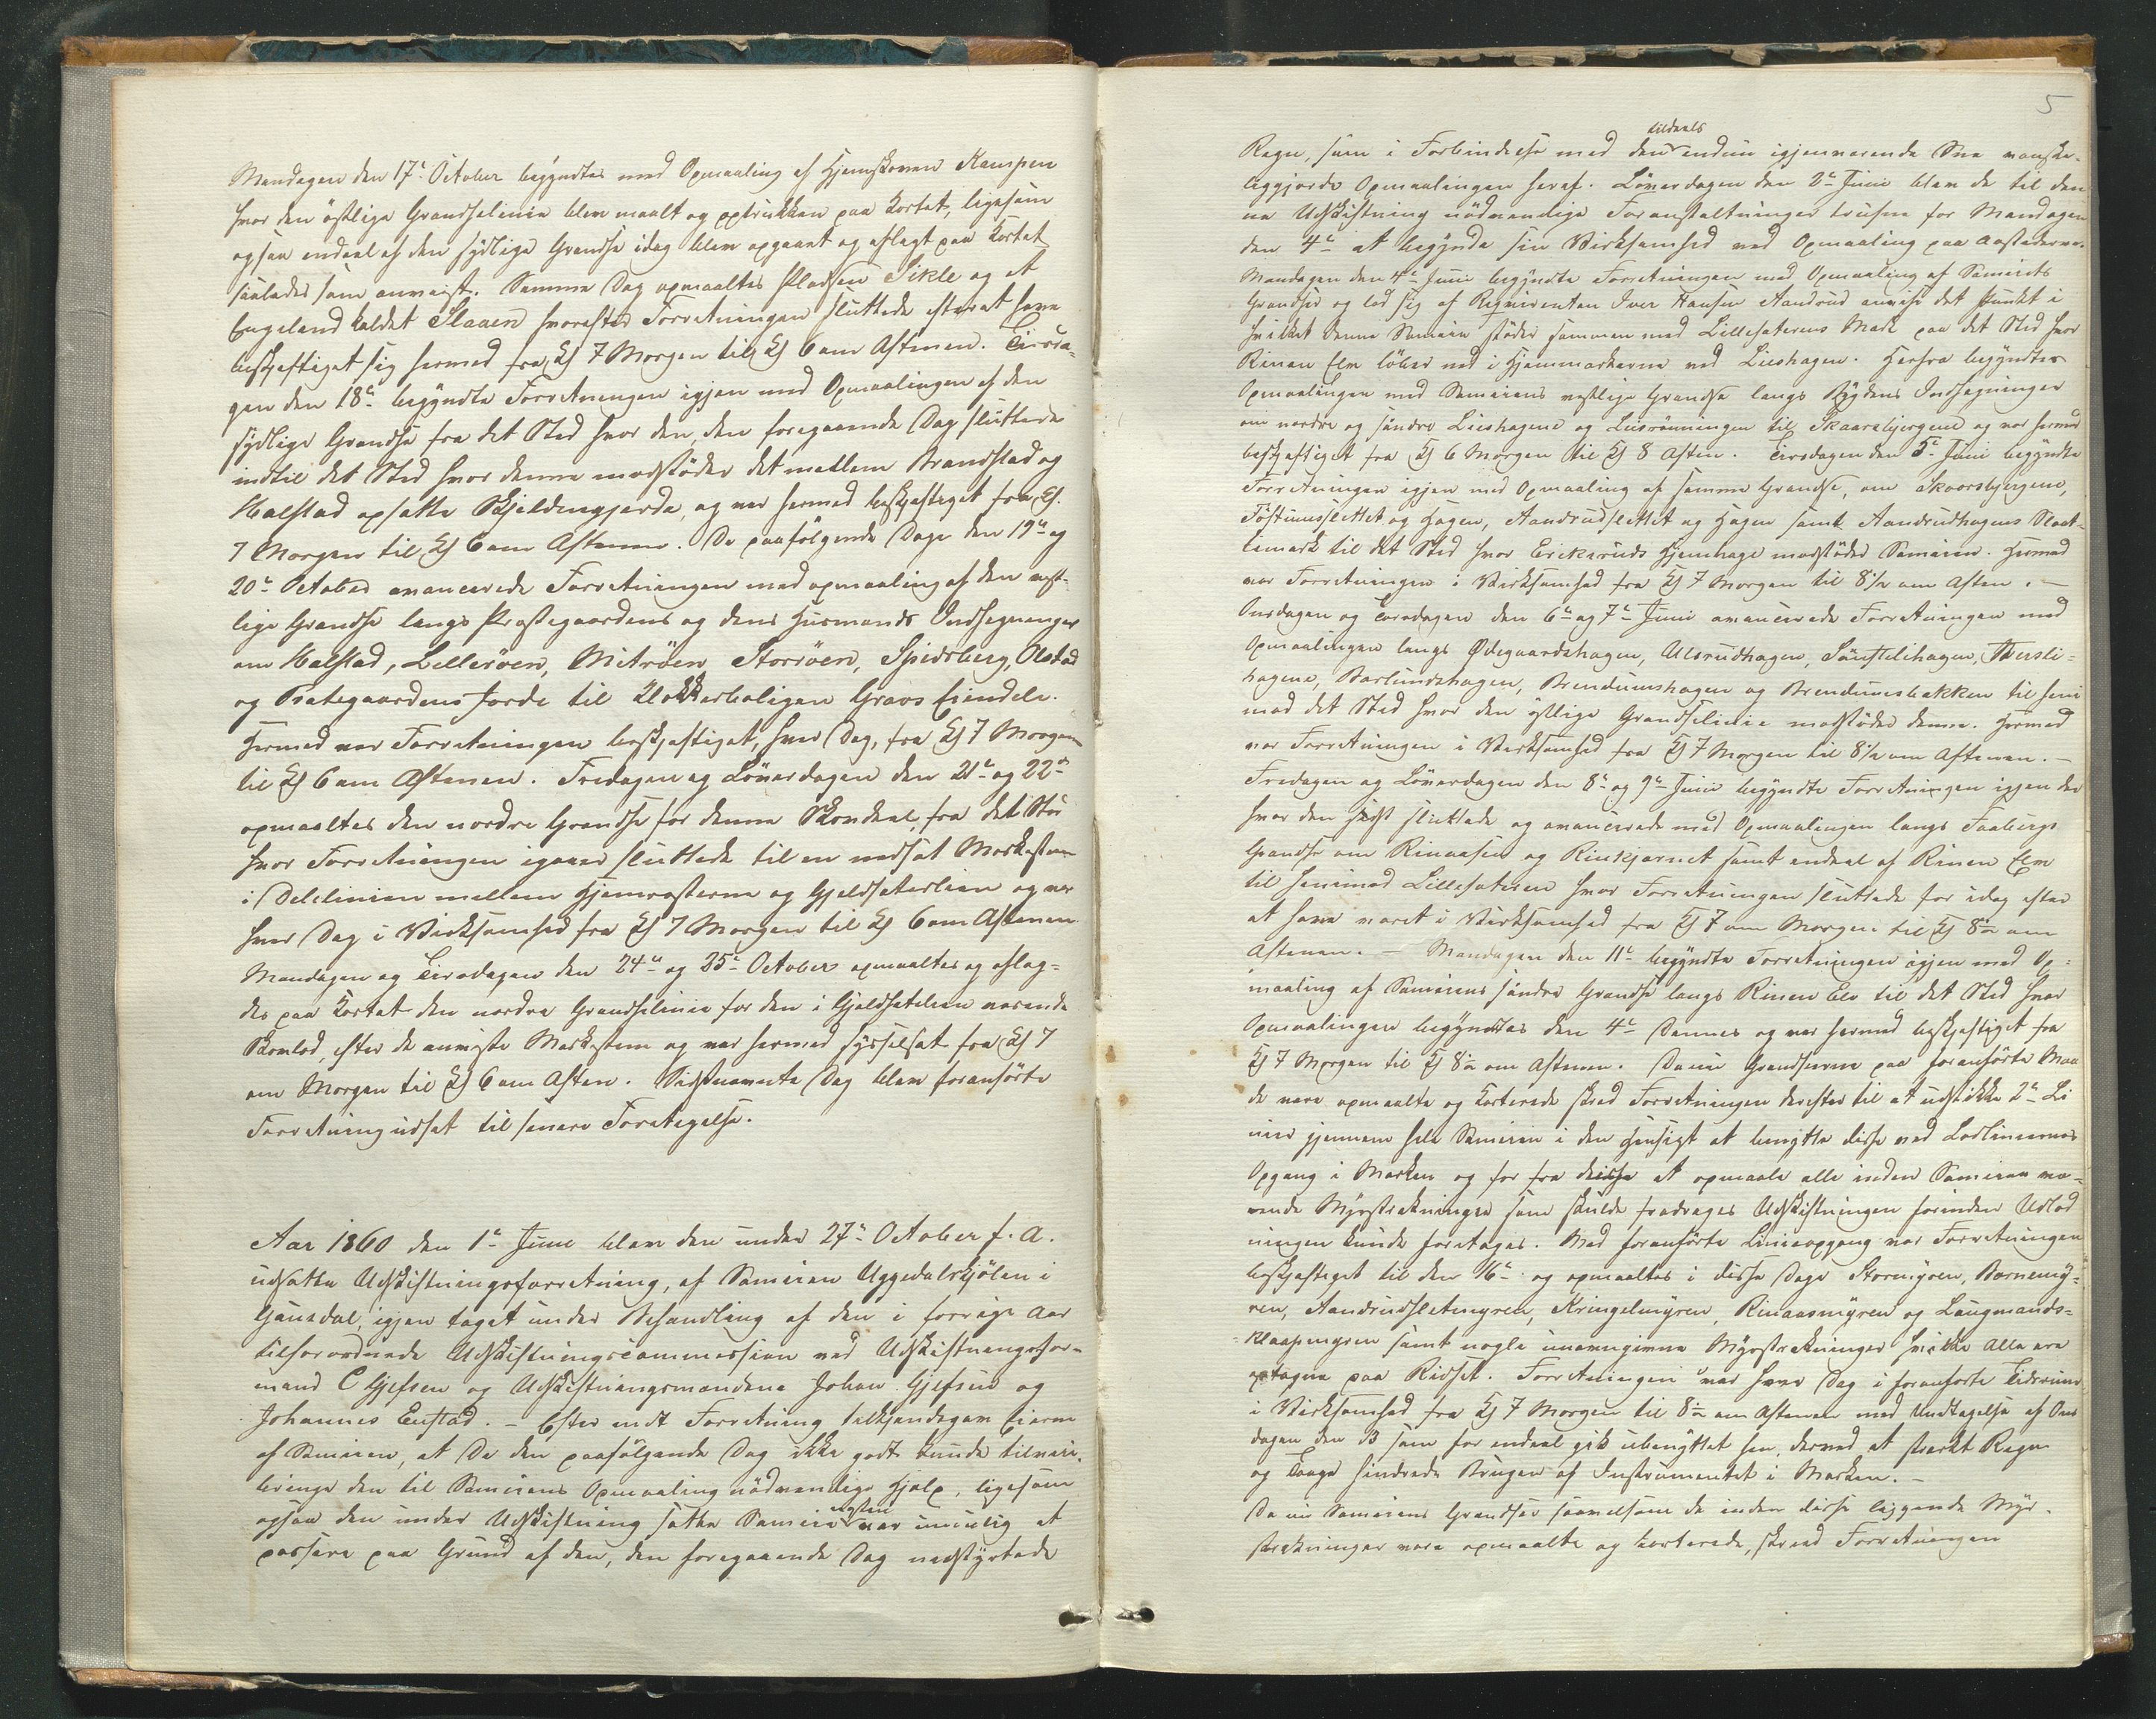 Mandagen den 17de October begyndtes med Opmaaling af Hjemskoven Kampen
hvor den östlige Grændselinie blev maalt og optrukken paa Kortet, ligesom
ogsaa endeel af den sydlige Grændse idag blev opgaaet og aflagt paa Kortet
saaledes som anviist. Samme Dag opmaaltes Pladsen Sikle og et
Engeland kaldet Slaaen hvorefter Forretningen sluttede efterat have
beskjeftiget sig hermed fra Kl 7 Morgen til Kl 6 om Aftenen. Tirsda-
gen den 18de begyndte Forretningen igjen med Opmaalingen af den
sydlige Grændse fra det Sted hvor den, den foregaaende Dag sluttede
indtil det Sted hvor denne modstöder det mellem Brandstad og
Kalstad opsatte Skjeldingjerde, og var hermed beskjeftiget fra Kl.
7 Morgen til Kl 6 om Aftenen. De paafölgende Dage den 19de og
20de October avancerede Forretningen med opmaaling af den vest-
lige Grændse langs Præstegaardens og dens Husmænds Indhegninger
om Kalstad, Lilleröen, Mitröen, Storröen, Spidsberg, Olstad
og Præstegaardens Jorde til Klokkerboligen Gravs Eiendele.
Hermed var Forretningen beskjeftiget, hver Dag, fra Kl 7 Morgen
til Kl 6 om Aftenen. Fredagen og Löverdagen den 21de og 22de
opmaaltes den nordre Grændse for denne Skovdeel, fra det Sted
hvor Forretningen igaaer sluttede til en nedsat Markesteen
i Delelinien mellem Hjemrasterne og Gjeldsæterlien og var
hver Dag i Virksomhed fra Kl 7 Morgen til Kl 6 om Aftenen
Mandagen og Tirsdagen den 24de og 25de October opmaaltes og aflag-
des paa Kortet den nordre Grændselinie for den i Gjeldsæterlien værende
Skovlod, efter de anviste Markesteen og var hermed sysselsat fra Kl 7
om Morgen til Kl 6 om Aften. Sidstnævnte Dag blev foranförte
Forretning udsat til senere Foretagelse.
Aar 1860 den 1ste Juni blev den under 27de October f. A.
udsatte Udskiftningsforretning, af Sameien Uggedalskjölen i
Gausdal, igjen taget under Behandling af den i forrige Aar
tilforordnede Udskiftningscommission ved Udskiftningsfor-
mand C Gjefsen og Udskiftningsmændene Johan Gjefsen og
Johannes Enstad. – Efter endt Forretning tilkjendegav Eierne
af Sameien, at De den paafölgende Dag ikke godt kunde tilveie-
bringe den til Sameiens Opmaaling nödvendige Hjælp, ligesom
ogsaa den under Udskiftning satte Sameie næsten var umulig at
passere paa Grund af den, den foregaaende Dag nedstyrtede
5
Regn, som i Forbindelse med den tildeels endnu igjenværende Snee vanske-
liggjorde Opmaalingen heraf. Löverdagen den 2de Juni blev de til den-
ne Udskiftning nödvendige Foranstaltninger trufne for Mandagen
den 4de at begynde sin Virksomhed ved Opmaaling paa Aastederne.
Mandagen den 4de Juni begyndte Forretningen med Opmaaling af Sameiets
Grændser og lod sig af Reqvirenten Iver Hansen Aandrud anvise det Punkt i
hvilket denne Sameie stöder sammen med Lillesæterens Mark paa det Sted hvor
Rinen Elv löber ned i Hjemmarkerne ved Lieshagen. Herfra begyndtes
Opmaalingen med Sameiens vestlige Grændse langs Bygdens Indhegninger
om nordre og söndre Lieshagene og Liesrönningen til Skaarsbjergene og var hermed
beskjeftiget fra Kl 6 Morgen til Kl 8 Aften. Tirsdagen den 5te Juni begyndte
Forretningen igjen med Opmaaling af samme Grændse, om Skaarsbjergene,
Töftumsslettet og Hagen, Aandrudslettet og Hagen samt Aandrudhagens Slaat-
temark til det Sted hvor Eriksruds Hjemhage modstöder Sameien. Hermed
var Forretningen i Virksomhed fra Kl 7 Morgen til 8½ om Aften. –
Onsdagen og Torsdagen den 6te og 7de Juni avancerede Forretningen med
Opmaalingen langs Ødegaardshagen, Ulsrudhagen, Sönstelihagen, Thersli-
hagene, Barlundshagen, Brendumshagen og Brendumsbakken til hen-
mod det Sted hvor den östlige Grændselinie modstöder denne. Hermed
var Forretningen i Virksomhed fra Kl 7 Morgen til 8½ om Aftenen. –
Fredagen og Löverdagen den 8de og 9de Juni begyndte Forretningen igjen der
hvor den sidst sluttede og avancerede med Opmaalingen langs Faabergs
Grændse om Rinaasen og Rinkjærnet samt endeel af Rinen Elv
til henimod Lillesæteren hvor Forretningen sluttede for idag efter
at have været i Virksomhed fra Kl 7 om Morgen til Kl 8½ om
Aftenen. – Mandagen den 11te begyndte Forretningen igjen med Op-
maaling af Sameiens söndre Grændse langs Rinen Elv til det Sted hvor
Opmaalingen begyndtes den 4de Dennes og var hermed beskjeftiget fra
Kl 7 Morgen til Kl 8½ om Aftenen. Da nu Grændserne paa foranförte Maa-
de vare opmaalte og Korterede skred Forretningen derefter til at udstikke 2de Li-
nier gjennem hele Sameien i den Hensigt at benytte disse ved Lodliniernes
Opgang i Marken og for fra disse at opmaale alle inden Sameien væ-
rende Myrstrækninger som skulde fradrages Udskiftningen forinden Udlod-
ningen kunde foretages. Med foranförte Linieopgang var Forretningen
beskjeftiget til den 16de og opmaaltes i disse Dage Stormyren, Børnemy-
ren, Aandrudsletmyren, Kringelmyren, Rinaasmyren og Langmands-
klaapmyren samt nogle unavngivne Myrstrækninger hvilke Alle ere
optagne paa Ridset. Forretningen var hver Dag i foranförte Tidsrum
i Virksomhed fra Kl 7 Morgen til 8½ om Aftenen med Undtagelse af Ons-
dagen den 13 som for endeel gik ubenyttet hen, derved at stærkt Regn
og Taage hindrede Brugen af Instrumentet i Marken. –
Da nu Sameiens Grændser saavelsom de inden disse liggende Myr-
strækninger vare opmaalte og korterede, skred Forretningen